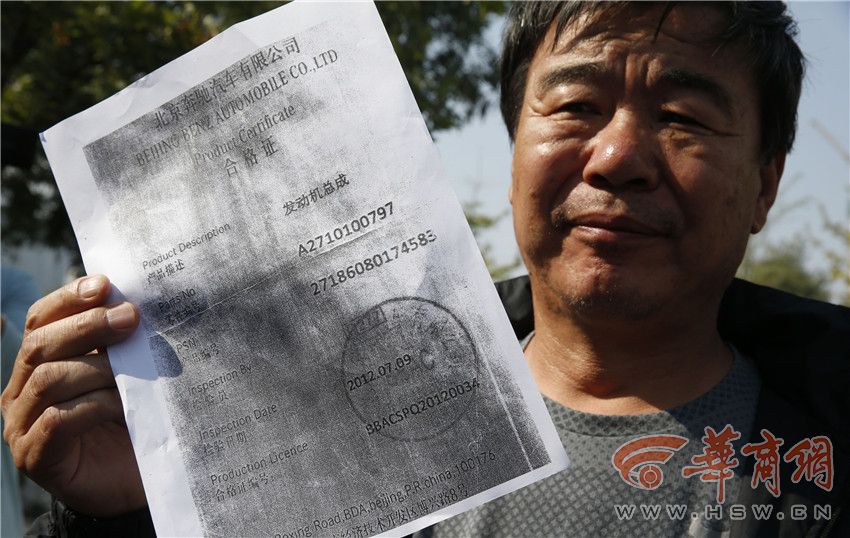 北京奔驰汽车有限公司
BEIJING BENZ AUTOMOBILE CO.,LTD
Product Certificate
合格证
Product Description 发动机总成
产品描述
Parts No A2710100797
PSN 27186080174583
Inspection By
检验员
Inspection Date 2012.07.09
检验日期
Production Licence BBACSPQ2012003A
合格证编号
Boxing,Road,BDA,beijing,P.R.china-100176
经济技术开发区博兴路8号
华商网
WWW.HSW.CN